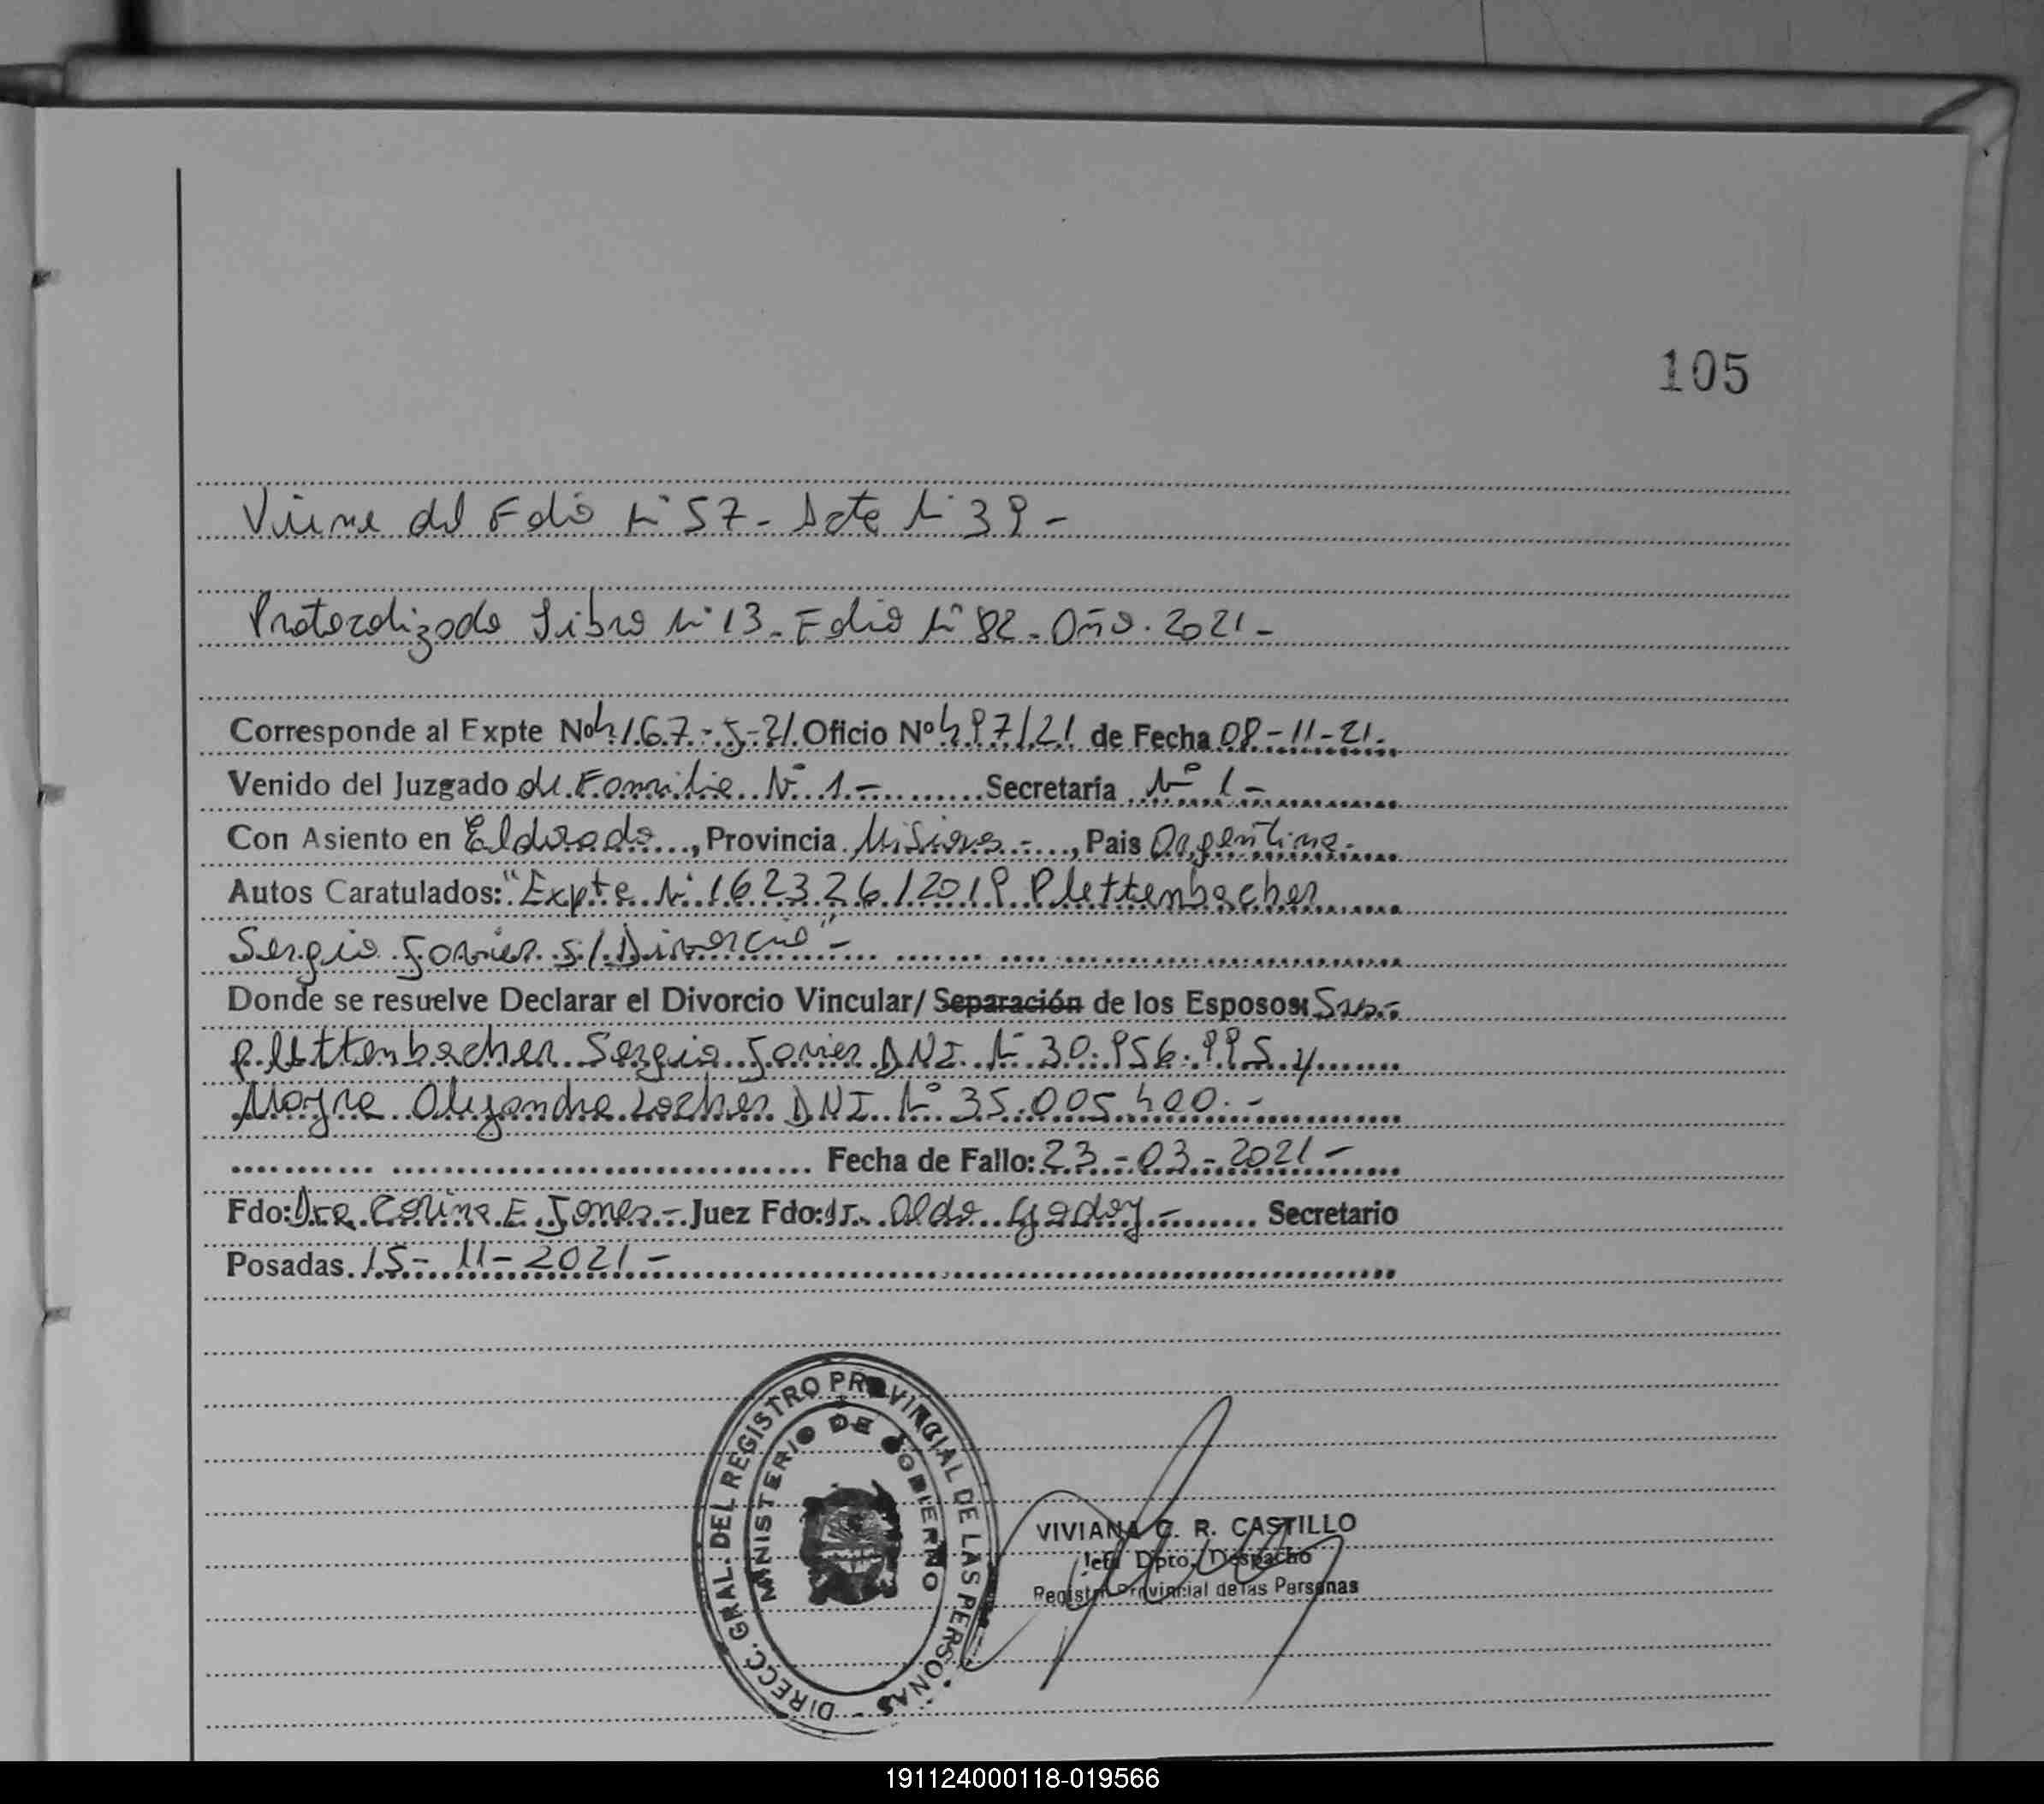 105
Viene del Folio N° 57 - Acta N° 39 -
Protocolizado Libro N° 13 - Folio N° 82 - Año 2021 -
Corresponde al Expte Nº 4167-J-21 Oficio Nº 497/21 de Fecha 08-11-21.
Venido del Juzgado de Familia N° 1.- Secretaría N° 1 -
Con Asiento en Eldorado, Provincia Misiones -, Pais Argentina.
Autos Caratulados: "Expte N° 162326/2019 Plettenbacher
Sergio Javier s/ Divorcio" -
Donde se resuelve Declarar el Divorcio Vincular/ Separación de los Esposos: Sres.-
Plettenbacher Sergio Javier DNI N° 30.956.995 y
Mayra Alejandra DNI N° 35.005.400.-
Fecha de Fallo: 23-03-2021 -
Fdo: Dra. E. Jones.- Juez Fdo: Dr. Aldo Godoy.- Secretario
Posadas 15-11-2021 -
DIRECC. GRAL. DEL REGISTRO PROVINCIAL DE LAS PERSONAS -
MINISTERIO DE GOBIERNO
VIVIANA C. R. CASTILLO
Jefa Dpto. Despacho
Registro Provincial de las Personas
191124000118-019566